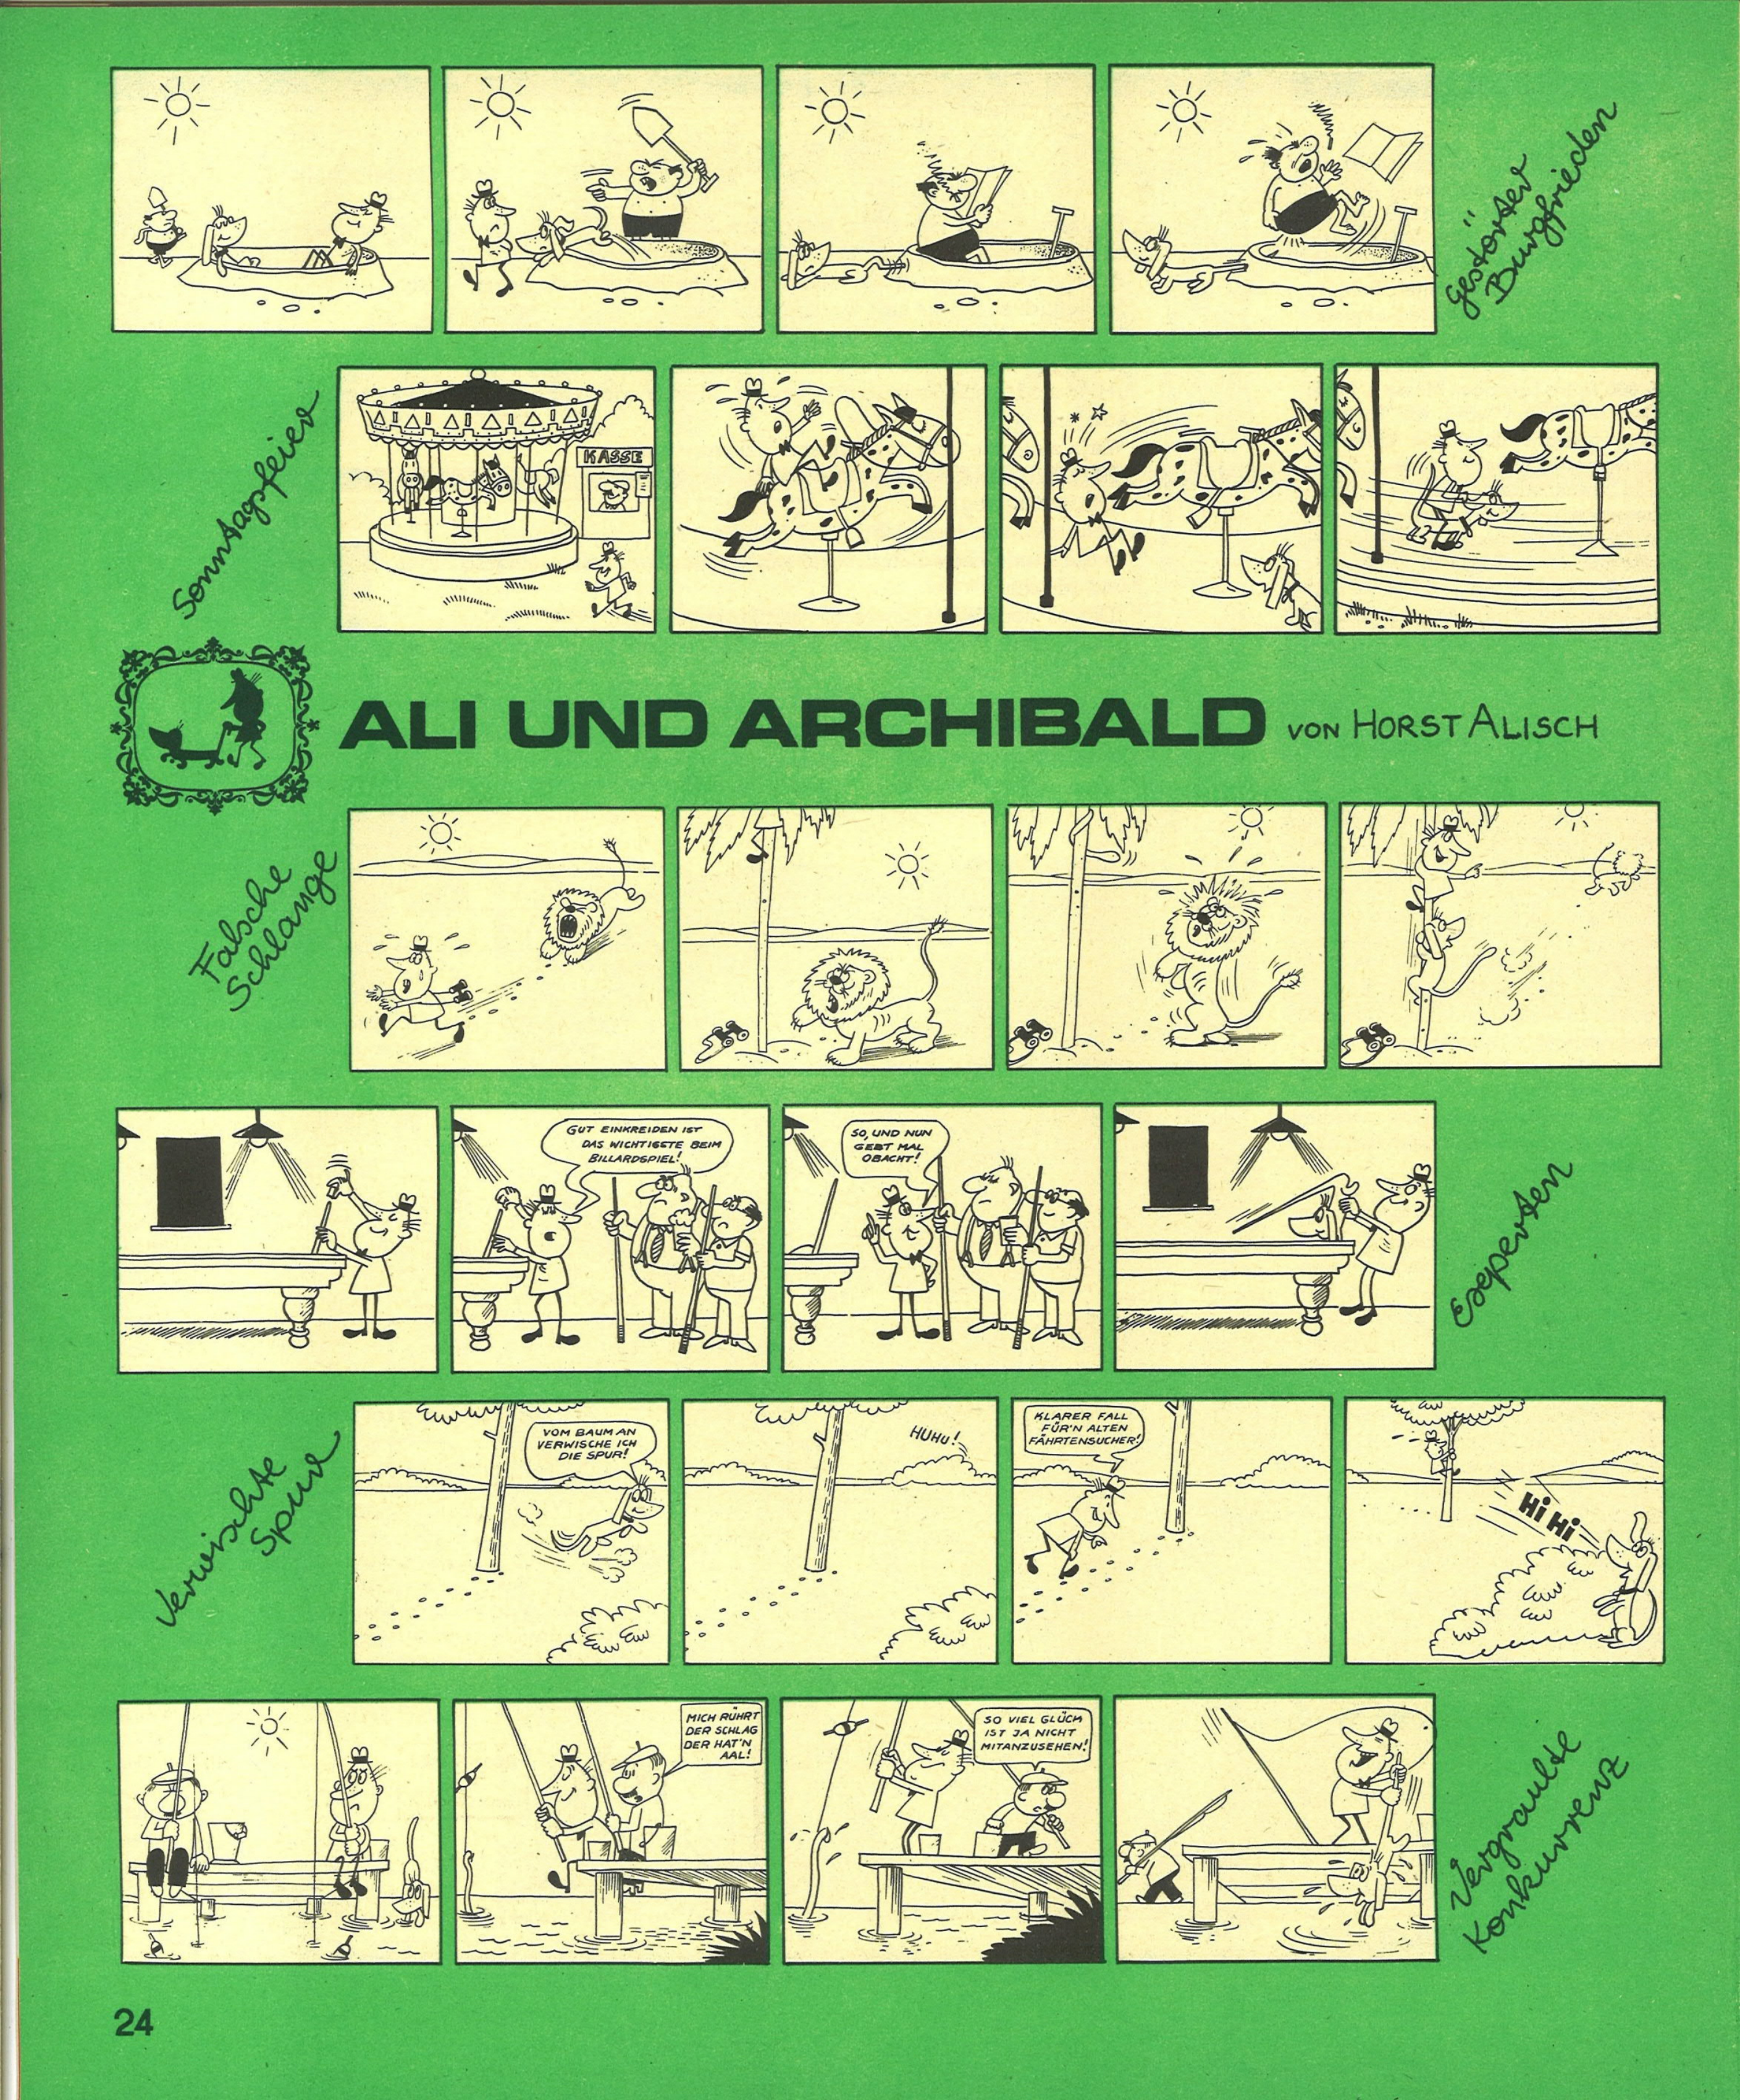 Gestörter
Burgfrieden
Sonntagsfeier
KASSE
ALI UND ARCHIBALD VON HORST ALISCH
Falsche
Schlange
GUT EINKREIDEN IST
DAS WICHTIGSTE BEIM
BILLARDSPIEL!
SO, UND NUN
GEBT MAL
OBACHT!
Experten
Verwischte
Spur
VOM BAUM AN
VERWISCHE ICH
DIE SPUR!
HUHU!
KLARER FALL
FÜR'N ALTEN
FÄHRTENSUCHER!
Hi Hi
MICH RÜHRT
DER SCHLAG
DER HAT'N
AAL!
SO VIEL GLÜCK
IST JA NICHT
MITANZUSEHEN!
Vergraulte
Konkurrenz
24